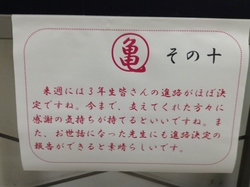 亀 その十
来週には3年生皆さんの進路がほぼ決
定ですね。今まで、支えてくれた方々に
感謝の気持ちが持てるといいですね。ま
た、お世話になった先生にも進路決定の
報告ができると素晴らしいです。